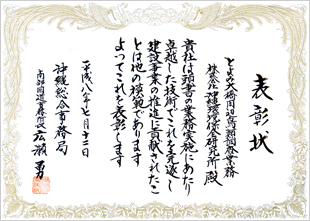 表彰状
とよみ大橋周辺鳥類調査業務
株式会社沖縄環境保全研究所 殿
貴社は頭書の業務実施にあたり
卓越した技術でこれを完遂し
建設事業の推進に貢献されたこ
とは他の模範であります
よってこれを表彰します
平成八年七月十二日
沖縄総合事務局
南部国道事務所長 広瀬